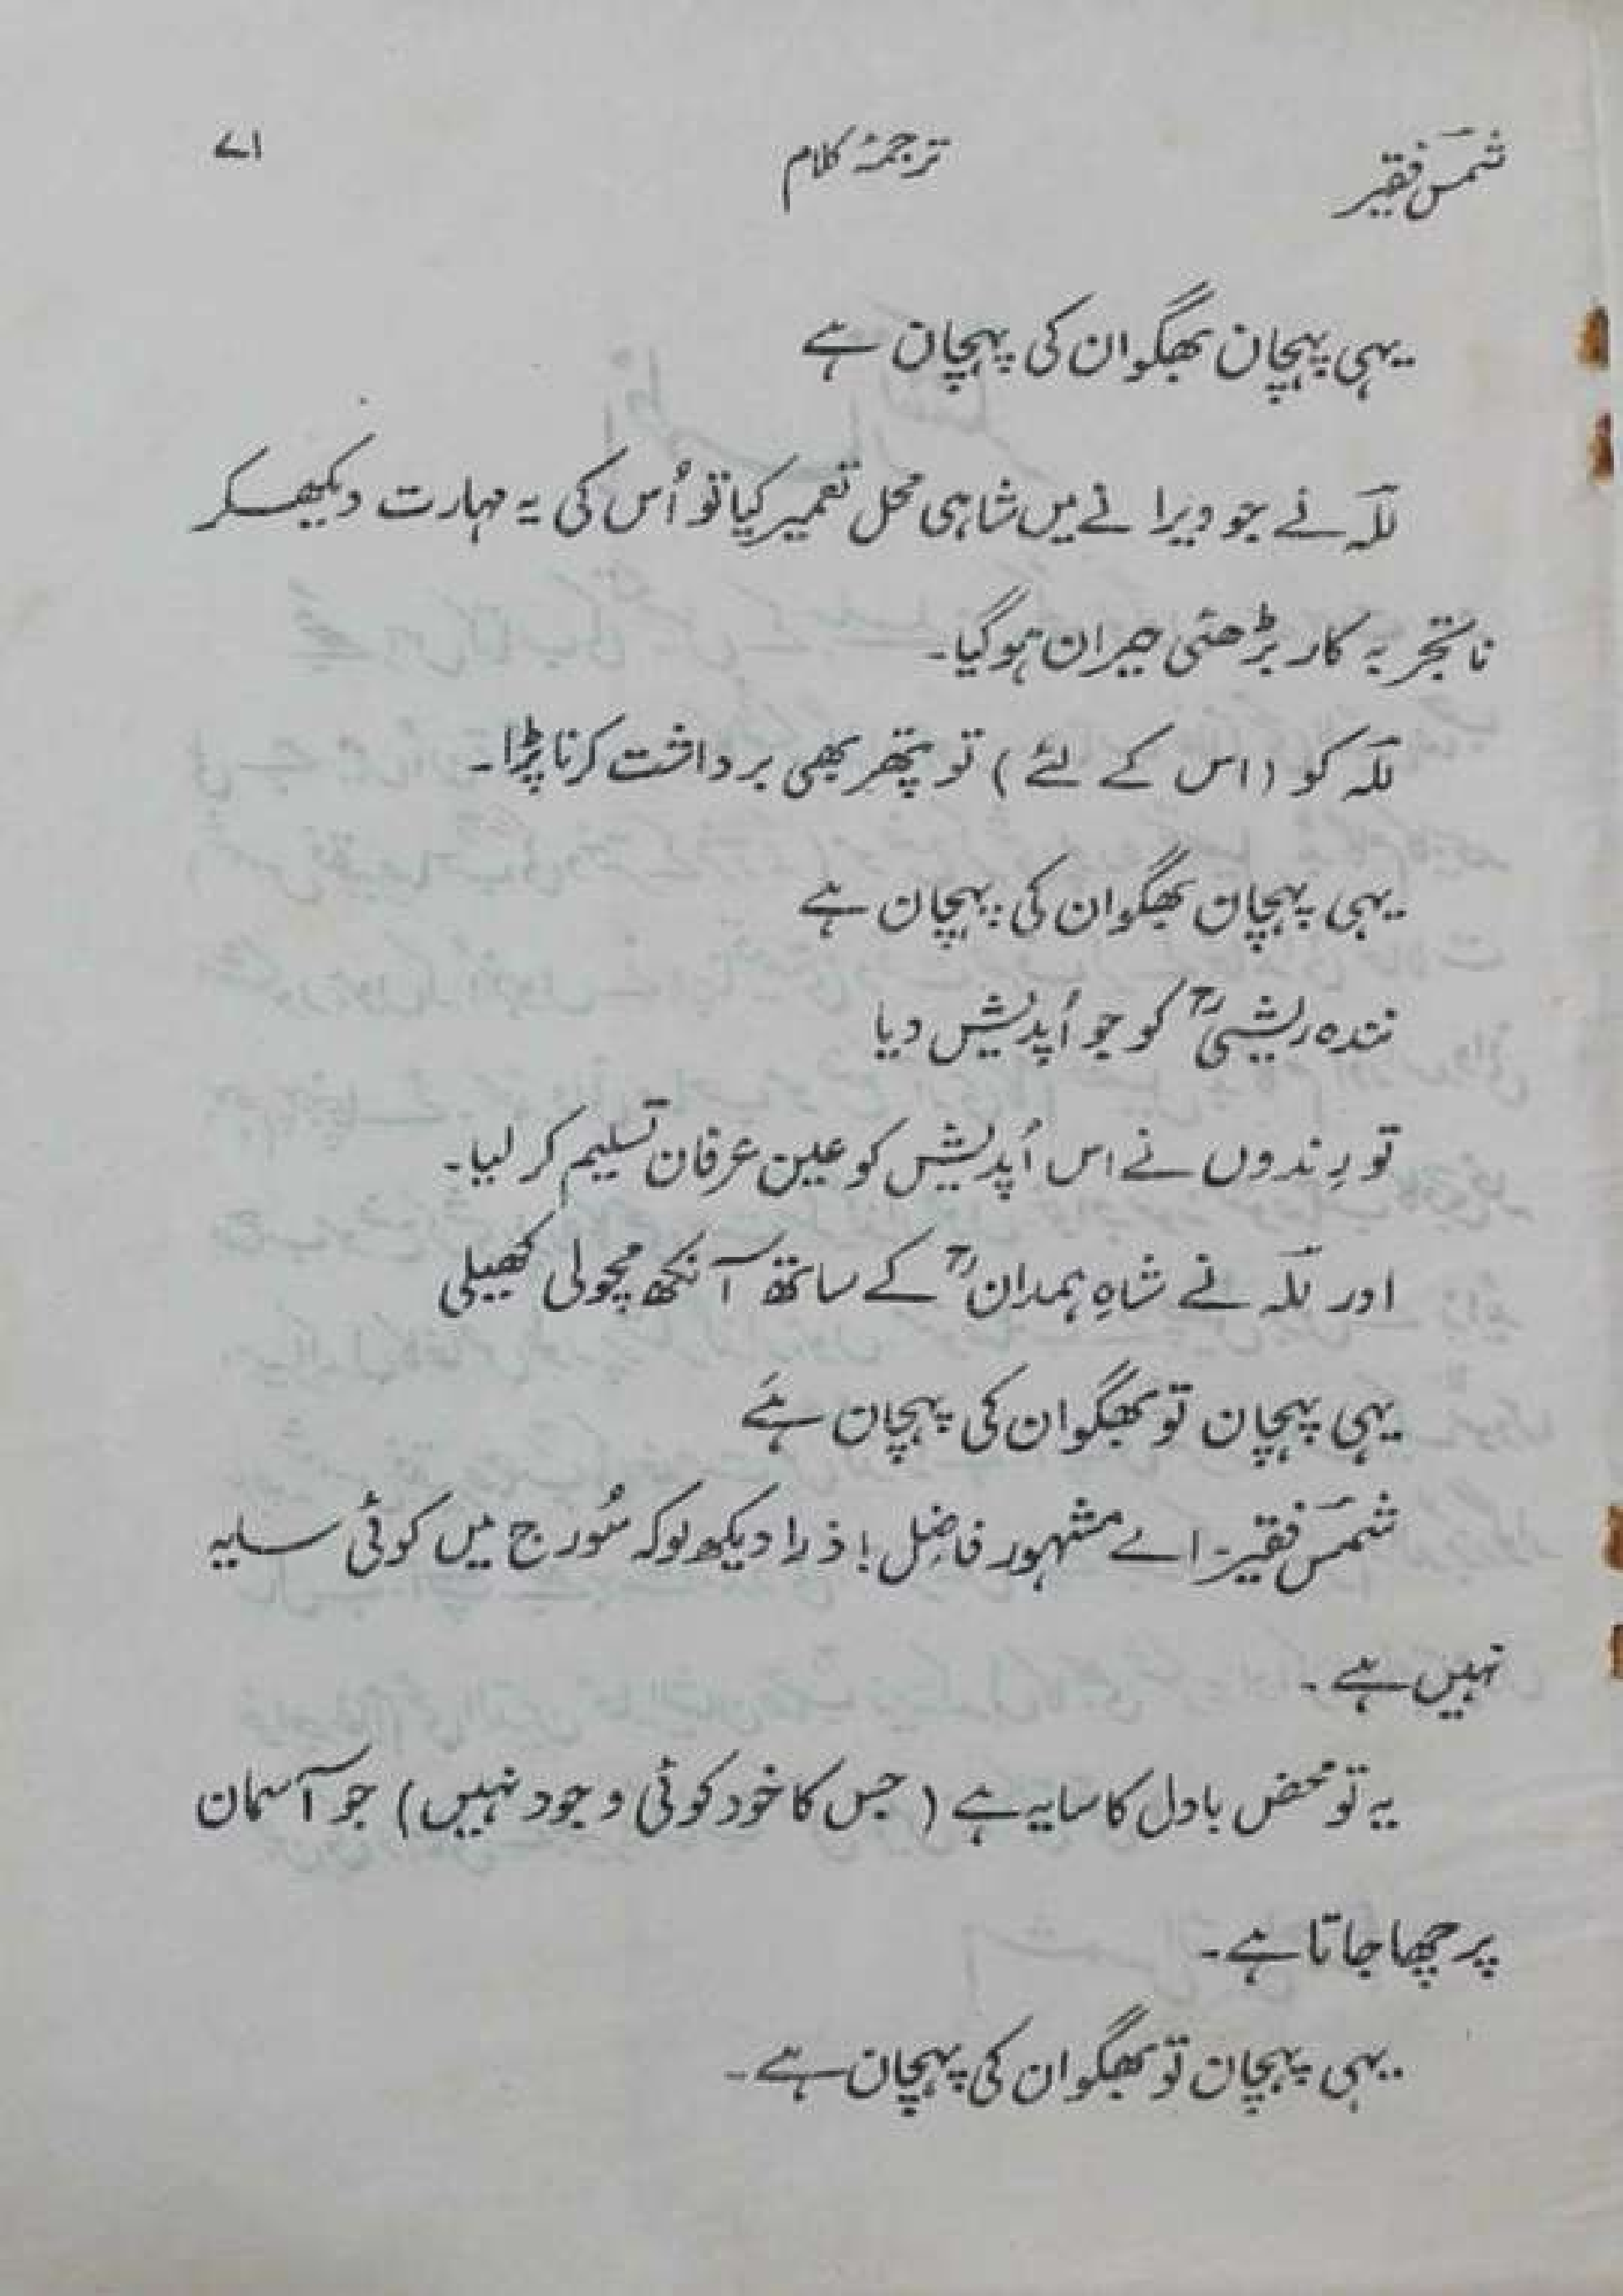 شمس فقیر ترجمۂ کلام ۷۱
یہی پہچان بھگوان کی پہچان ہے
للہ نے جو ویرانے میں شاہی محل تعمیر کیا تو اُس کی یہ مہارت دیکھکر
ناتجربہ کار بڑھئی حیران ہوگیا۔
للہ کو (اس کے لئے) تو پتھر بھی برداشت کرنا پڑا۔
یہی پہچان بھگوان کی پہچان ہے
نندہ ریشیؒ کو جو اُپدیش دیا
تو رِندوں نے اس اُپدیش کو عین عرفان تسلیم کر لیا۔
اور للہ نے شاہِ ہمدانؒ کے ساتھ آنکھ مچولی کھیلی
یہی پہچان تو بھگوان کی پہچان ہے
شمس فقیر۔ اے مشہور فاضِل! ذرا دیکھ لوکہ سُورج میں کوئی سایہ
نہیں ہے۔
یہ تو محض بادل کا سایہ ہے (جس کا خود کوئی وجود نہیں) جو آسمان
پر چھا جاتا ہے۔
یہی پہچان تو بھگوان کی پہچان ہے۔